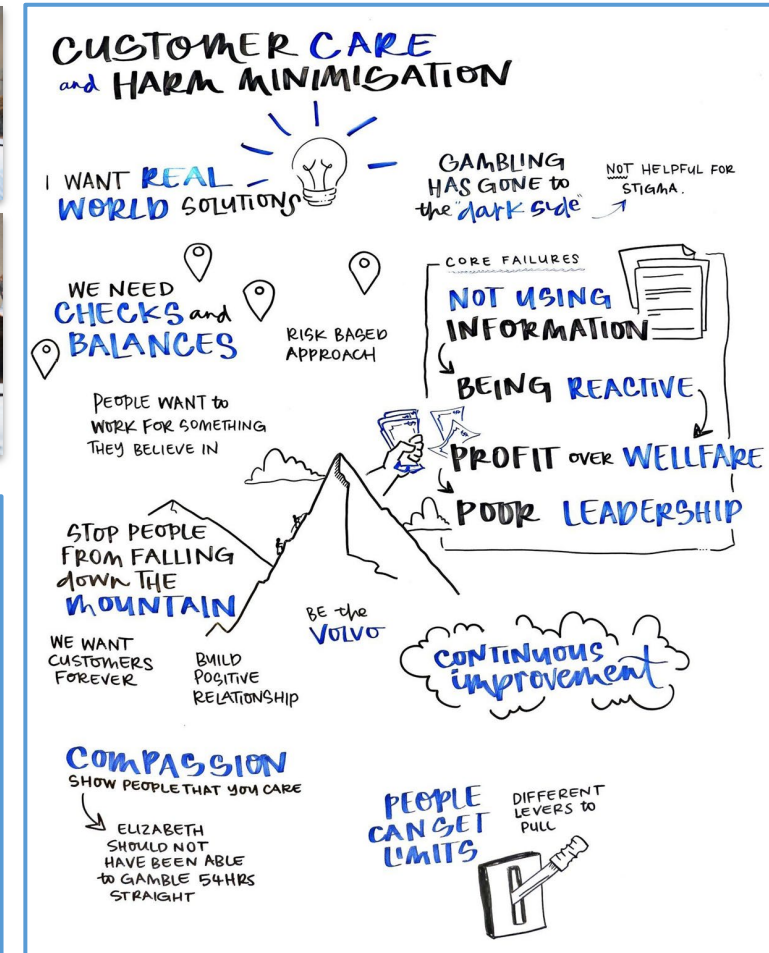 CUSTOMER CARE
and HARM MINIMISATION
I WANT REAL
WORLD SOLUTIONS
GAMBLING
HAS GONE to
the "dark side"
NOT HELPFUL FOR
STIGMA.
WE NEED
CHECKS and
BALANCES
RISK BASED
APPROACH
PEOPLE WANT to
WORK FOR SOMETHING
THEY BELIEVE IN
CORE FAILURES
NOT USING
INFORMATION
BEING REACTIVE
PROFIT OVER WELLFARE
POOR LEADERSHIP
STOP PEOPLE
FROM FALLING
down THE
MOUNTAIN
WE WANT
CUSTOMERS
FOREVER
BUILD
POSITIVE
RELATIONSHIP
BE the
VOLVO
CONTINUOUS
improvement
COMPASSION
SHOW PEOPLE THAT YOU CARE
ELIZABETH
SHOULD NOT
HAVE BEEN ABLE
to GAMBLE 54HRS
STRAIGHT
PEOPLE
CAN SET
LIMITS
DIFFERENT
LEVERS to
PULL